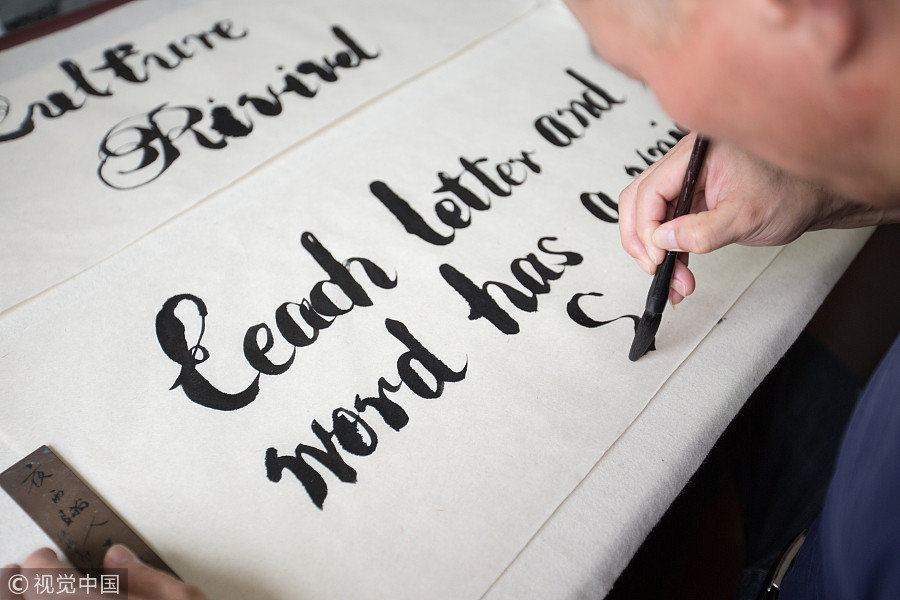 Culture
Rivival
Each letter and
word has a
© 视觉中国